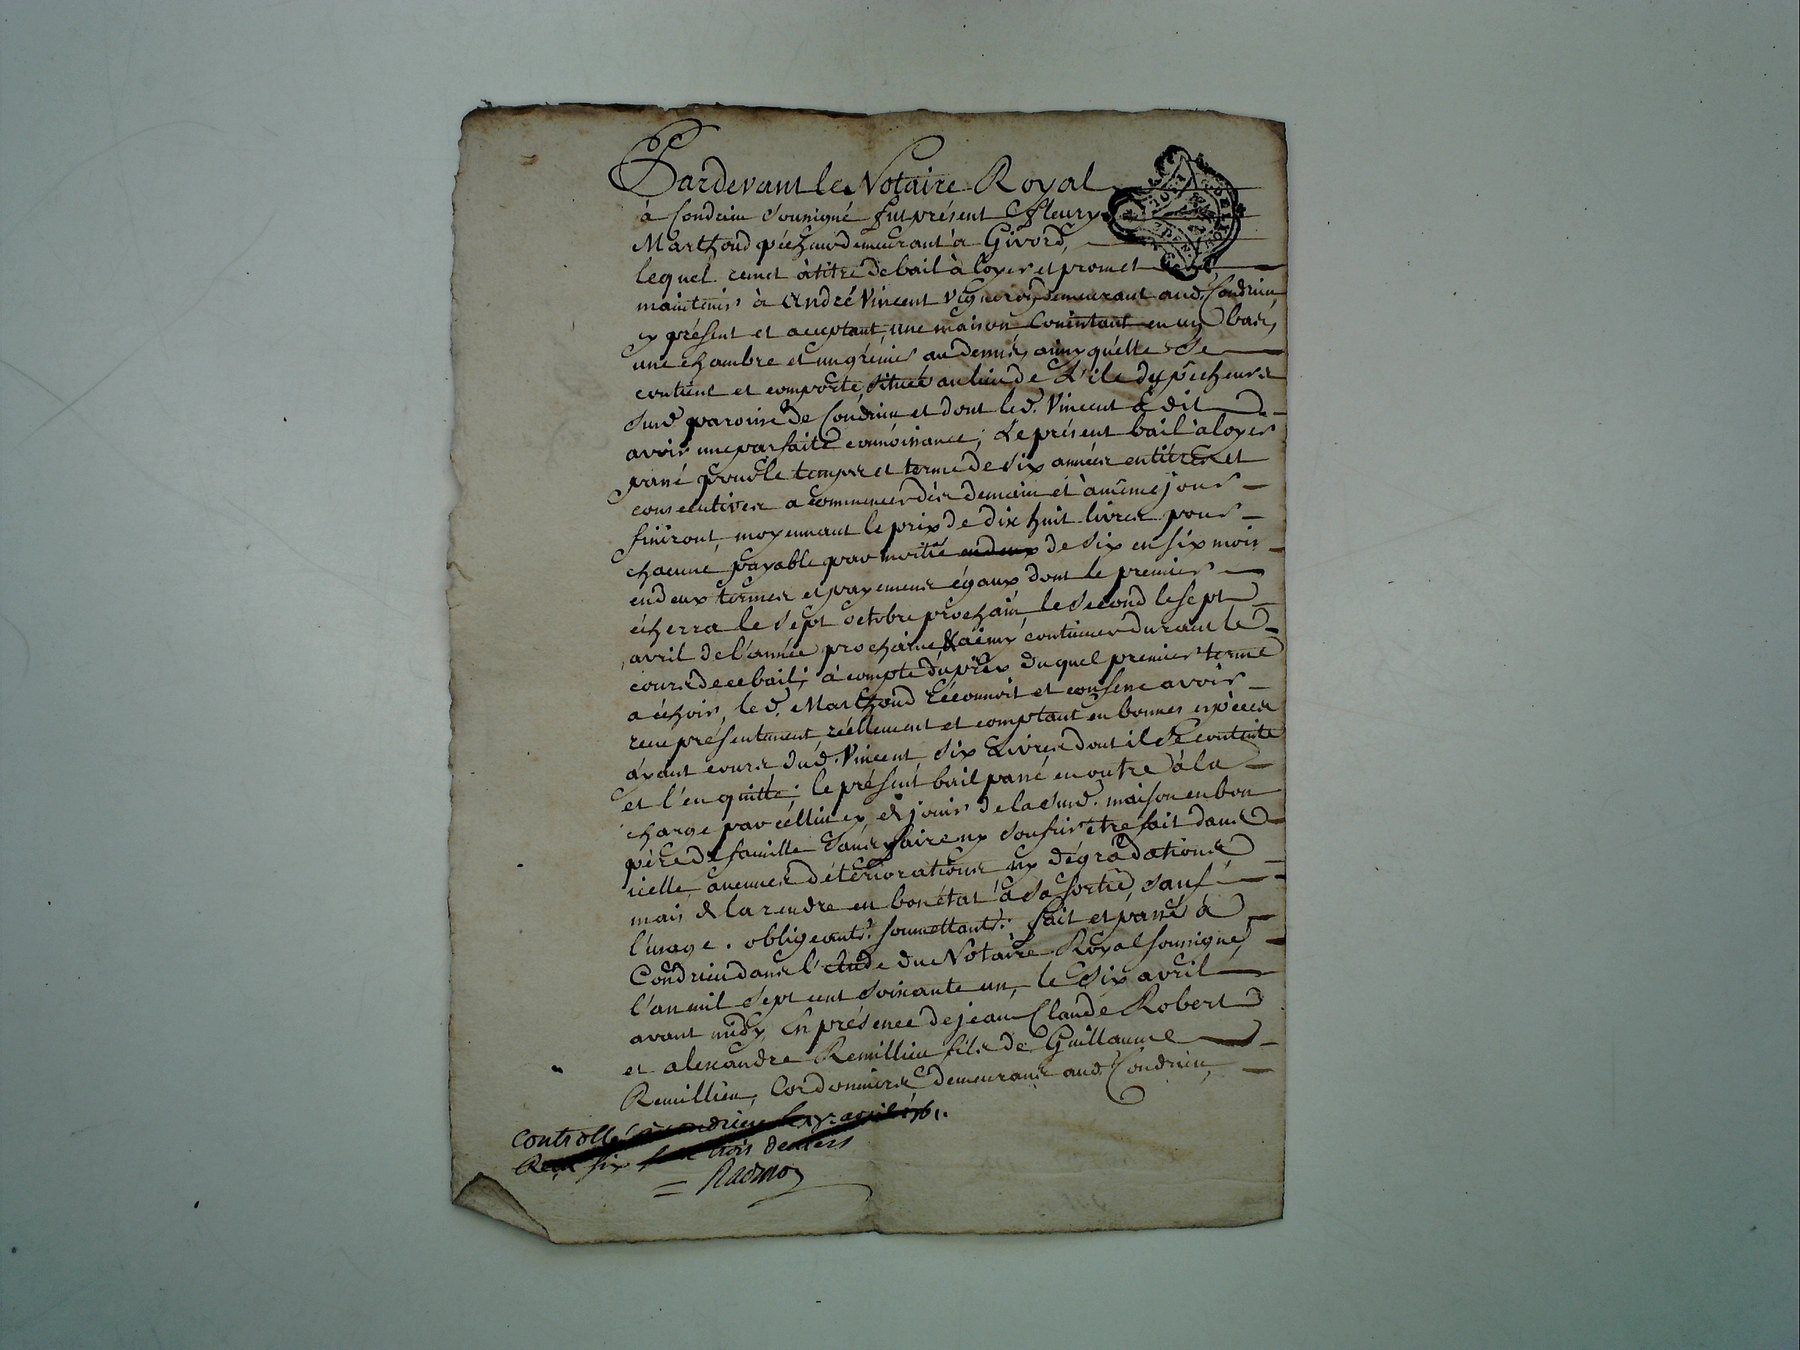 Pardevant le Notaire Royal
à Condrieu soussigné fut présent Fleury
Marthoud pécheur demeurant à Givord,
lequel remet à titre de bail à loyer et promet
maintenir à André Vincent vigneron demeurant aud. Condrieu,
cy présent et acceptant, une maison consistant en un bas,
une chambre et un grénier au dessus, ainsy qu'elle se
contient et comporte, située au lieu de L'ile des pêcheurs
sud. paroisse de Condrieu et dont led. Vincent a dit
avoir une parfaite connoissance; Le présent bail à loyer
passé pour le temps et terme de six années entières et
consecutives a commencer dès demain et à même jour
finiront, moyennant le prix de dix huit livres pour
chacune, payable par moitié en deux de six en six mois
en deux termes et payemens égaux dont le premier
écherra le sept octobre prochain, le second le sept
avril de l'année prochaine, & ainsy continuer durant le
cours de ce bail; à compte du prix duquel premier terme
a échoir, led. Marthoud reconnoit et confesse avoir
reçu présentement, réellement et comptant en bonnes espèces
ayant cours dud. Vincent six Livres dont il se contente
et l'en quitte; le présent bail passé en outre à la
charge par cellui cy de jouir de la sud. maison en bon
père de famille sans faire ny soufrir être fait dans
icelle aucunes détériorations ny dégradations
mais de la rendre en bon état à sa sortie, sauf
l'usage. obligeants. soumettants. fait et passé à
Condrieu dans l'étude du Notaire Royal soussigné,
l'an mil sept cent soixante un, le six avril
avant midy, En présence de jean Claude Robert
et alexandre Remillieu fils de Guillaume
Remillieu, Cordonniers demeurans aud. Condrieu,
Controllé à Condrieu le avril 1761.
Reçu six sols trois deniers